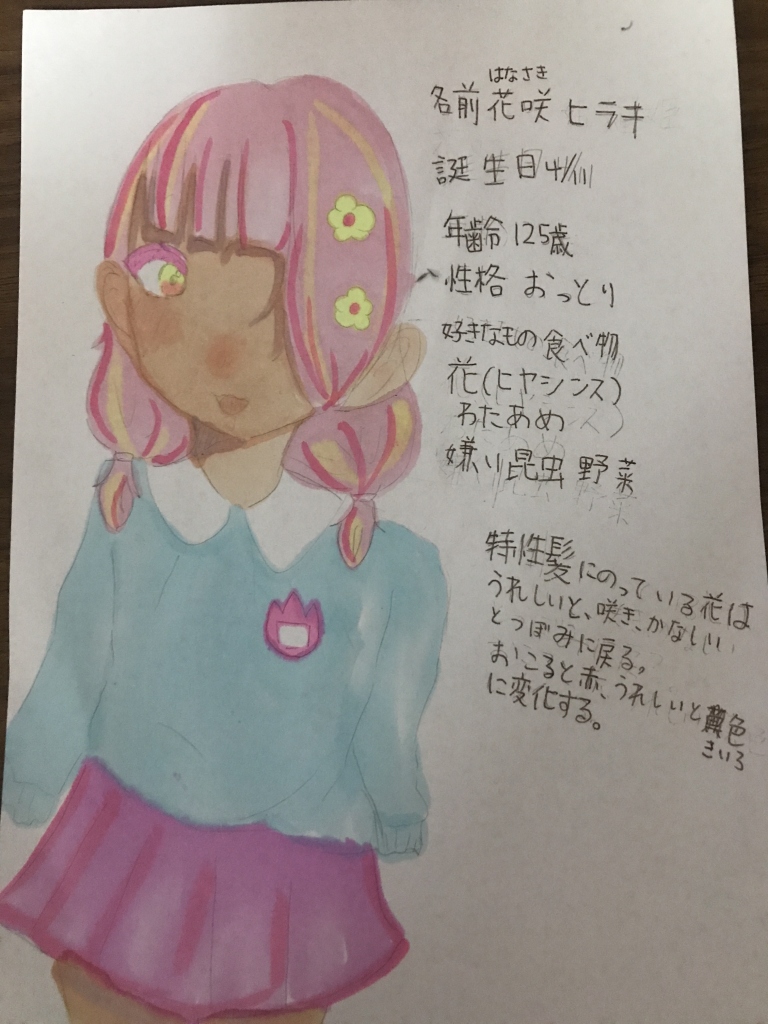 はなさき
名前 花咲 ヒラキ
誕生日 4/
年齢 125歳
性格 おっとり
好きなもの 食べ物
花(ヒヤシンス)
わたあめ
嫌い 昆虫 野菜
特性 髪にのっている花は
うれしいと、咲き、かなしい
とつぼみに戻る。
おこると赤、うれしいと黄色
きいろ
に変化する。